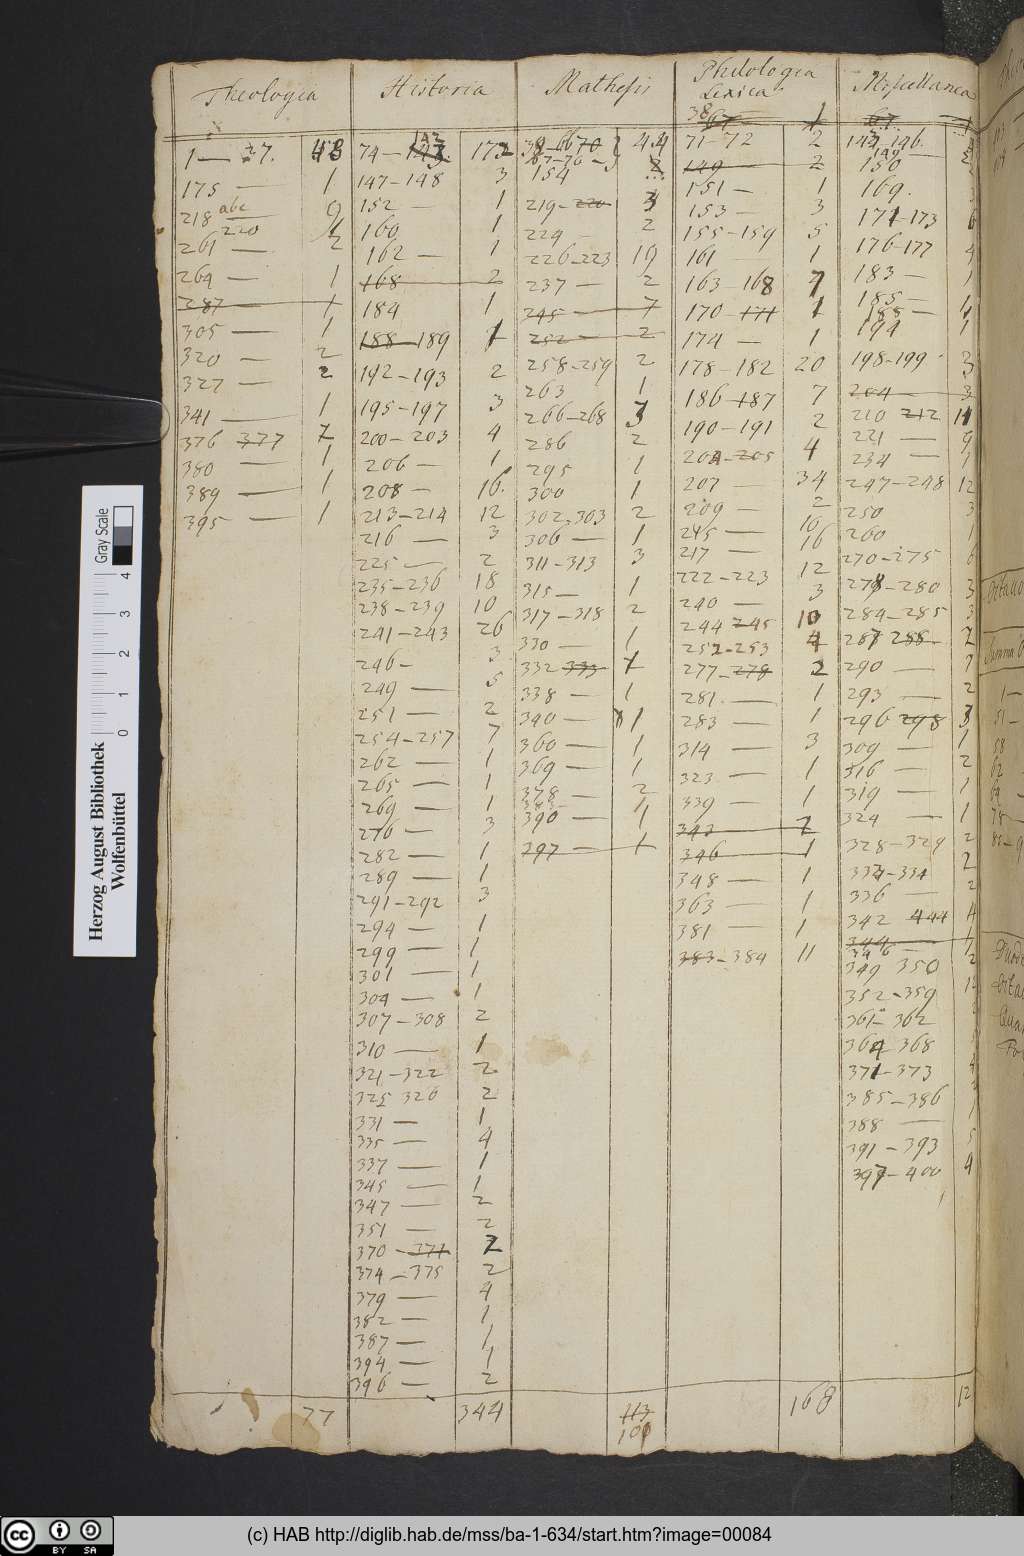 Theologica
1 — 37. 43
175 — 1
218 abc 9
220
261 — 2
269 — 1
287 — 1
305 — 1
320 — 2
327 — 2
341 — 1
376 377 2
380 — 1
389 — 1
395 — 1
77
Historica
74 — 143. 172
147 – 148 3
152 — 1
160 1
162 — 1
168 2
184 1
188 – 189 1
192 – 193 2
195 – 197 3
200 – 203 4
206 — 1
208 — 16.
213 – 214 12
216 — 3
225 — 2
235 – 236 18
238 – 239 10
241 – 243 26
246 – 3
249 — 5
251 — 2
254 – 257 7
262 — 1
265 — 1
269 — 1
276 — 3
282 — 1
289 — 1
291 – 292 3
294 — 1
299 — 1
301 — 1
304 — 1
307 – 308 2
310 — 1
321 – 322 2
325 326 2
331 — 1
335 — 4
337 — 1
345 — 1
347 — 2
351 — 2
370 – 371 2
374 – 375 2
379 — 4
382 — 1
387 — 1
394 — 1
396 — 2
344
Mathesis
38 – 66 70
67 – 70
154
219 – 220 3
224 – 2
226 – 223 19
237 — 2
245 — 7
252 — 2
258 – 259 2
263 1
266 – 268 3
286 2
295 1
300 1
302 – 303 2
306 — 1
311 – 313 3
315 — 1
317 – 318 2
330 — 1
332 333 1
338 — 1
340 — 1
360 — 1
369 — 1
378 — 2
390 — 1
397 — 1
113
101
Philologica
Lexica
38
67 — 1
71 – 72 2
149 — 2
151 — 1
153 — 3
155 – 159 5
161 1
163 – 168 7
170 – 171 1
174 — 1
178 – 182 20
186 – 187 7
190 – 191 2
204 – 205 4
207 — 34
209 — 2
245 — 10
217 — 16
222 – 223 12
240 — 3
244 245 10
252 – 253 4
277 – 278 2
281 — 1
283 — 1
314 — 3
323 — 1
339 — 1
343 2
346 1
348 — 1
363 — 1
381 — 1
383 – 384 11
168
Miscellanea
67.
144 – 146.
149 —
150
169.
171 – 173 6
176 – 177 4
183 — 1
185 —
188 —
194 1
198 – 199 3
204 — 3
210 212 11
221 — 9
234 — 1
247 – 248 12
250 3
260 1
270 – 275 6
279 – 280 3
284 – 285 3
287 288 2
290 —
293 — 2
296 298 3
309 — 1
316 — 2
319 — 1
324 — 1
328 – 329 2
334 – 334 2
336 — 2
342 444 4
344 1
346 —
349 350
352 – 359
361 – 362
364 368
371 – 373
385 – 386
388 —
391 – 393 5
397 – 400 4
12
Gray Scale
0 1 2 3 4
Herzog August Bibliothek
Wolfenbüttel
cc BY SA
(c) HAB http://diglib.hab.de/mss/ba-1-634/start.htm?image=00084